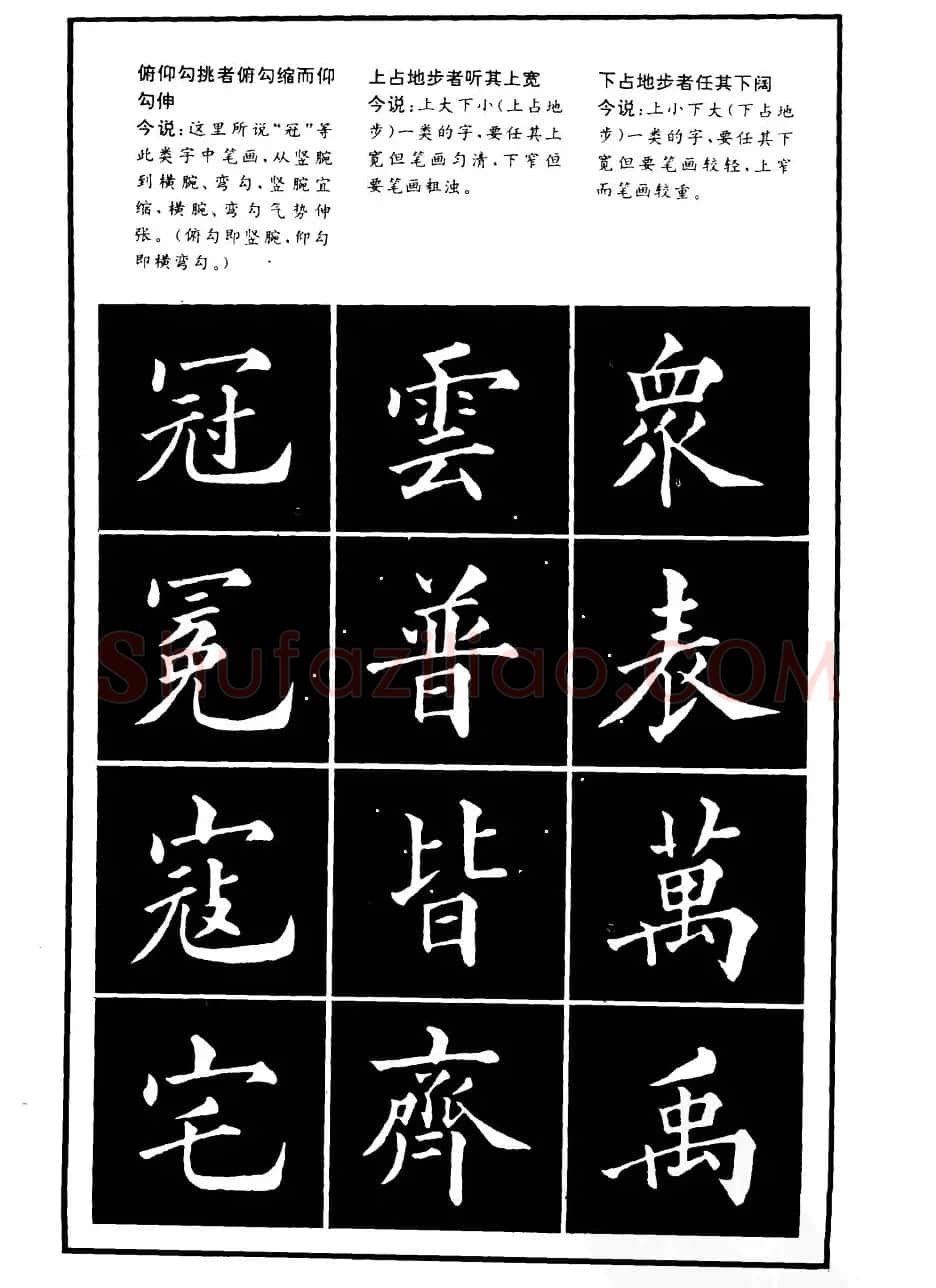 俯仰勾挑者俯勾缩而仰
勾伸
今说:这里所说“冠”等
此类字中笔画,从竖腕
到横腕、弯勾,竖腕宜
缩,横腕、弯勾气势伸
张。(俯勾即竖腕,仰勾
即横弯勾。)
上占地步者听其上宽
今说:上大下小(上占地
步)一类的字,要任其上
宽但笔画匀清,下窄但
要笔画粗浊。
下占地步者任其下阔
今说:上小下大(下占地
步)一类的字,要任其下
宽但要笔画较轻,上窄
而笔画较重。
冠 雲 衆
冕 普 表
寇 皆 萬
宅 齊 禹
Shufaziliao.COM